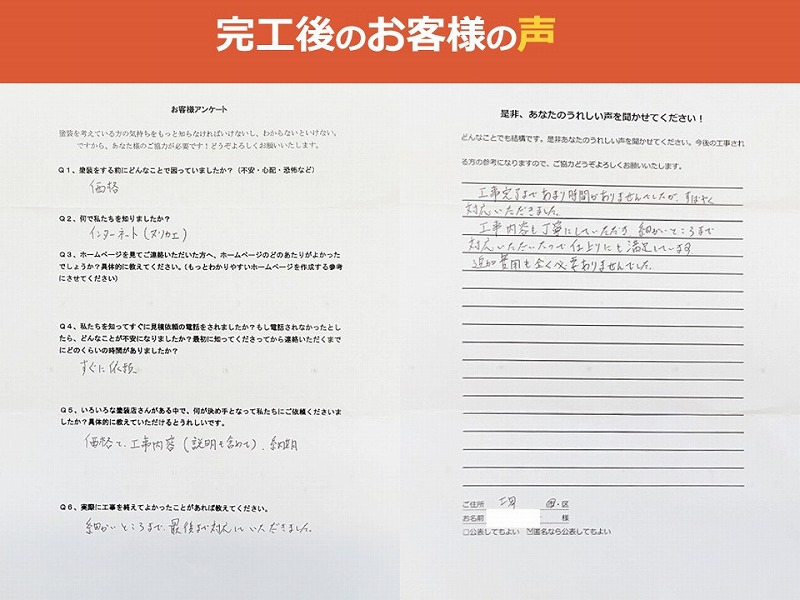 完工後のお客様の声
お客様アンケート
塗装を考えている方の気持ちをもっと知らなければいけないし、わからないといけない。
ですから、あなた様のご協力が必要です！どうぞよろしくお願いいたします。
Q1、塗装をする前にどんなことで困っていましたか？（不安・心配・恐怖など）
価格
Q2、何で私たちを知りましたか？
インターネット（ヌリカエ）
Q3、ホームページを見てご連絡いただいた方へ、ホームページのどのあたりがよかった
でしょうか？具体的に教えてください。（もっとわかりやすいホームページを作成する参考
にさせてください）
Q4、私たちを知ってすぐに見積依頼の電話をされましたか？もし電話されなかったとし
たら、どんなことが不安になりましたか？最初に知ってくださってから連絡いただくまで
にどのくらいの時間がありましたか？
すぐに依頼
Q5、いろいろな塗装店さんがある中で、何が決め手となって私たちにご依頼くださいま
したか？具体的に教えていただけるとうれしいです。
価格と、工事内容（説明も含めて）、納期
Q6、実際に工事を終えてよかったことがあれば教えてください。
細かいところまで、最後まで対応していただきました。
是非、あなたのうれしい声を聞かせてください！
どんなことでも結構です。是非あなたのうれしい声を聞かせてください。今後の工事され
る方の参考になりますので、ご協力どうぞよろしくお願いいたします。
工事完了まであまり時間がありませんでしたが、すばやく
対応いただきました。
工事内容も丁寧にしていただき、細かいところまで
対応いただいたので仕上りにも満足しています
追加費用も全く必要ありませんでした。
ご住所 市・区
お名前 様
□公表してもよい ☑匿名なら公表してもよい